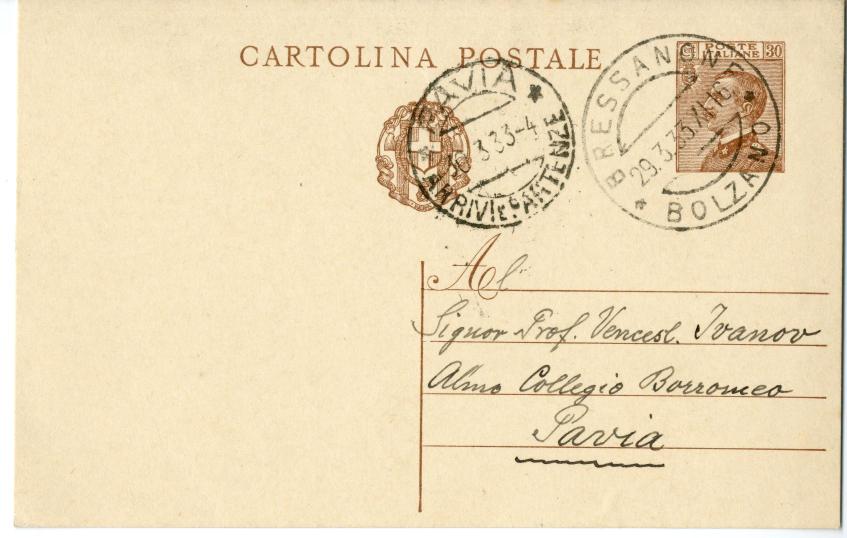 CARTOLINA POSTALE
POSTE ITALIANE 30
PAVIA
30.3.33-4
ARRIVI E PARTENZE
BRESSANONE
29.3.33.XI-16
BOLZANO
Al
Signor Prof. Vencesl. Ivanov
Almo Collegio Borromeo
Pavia